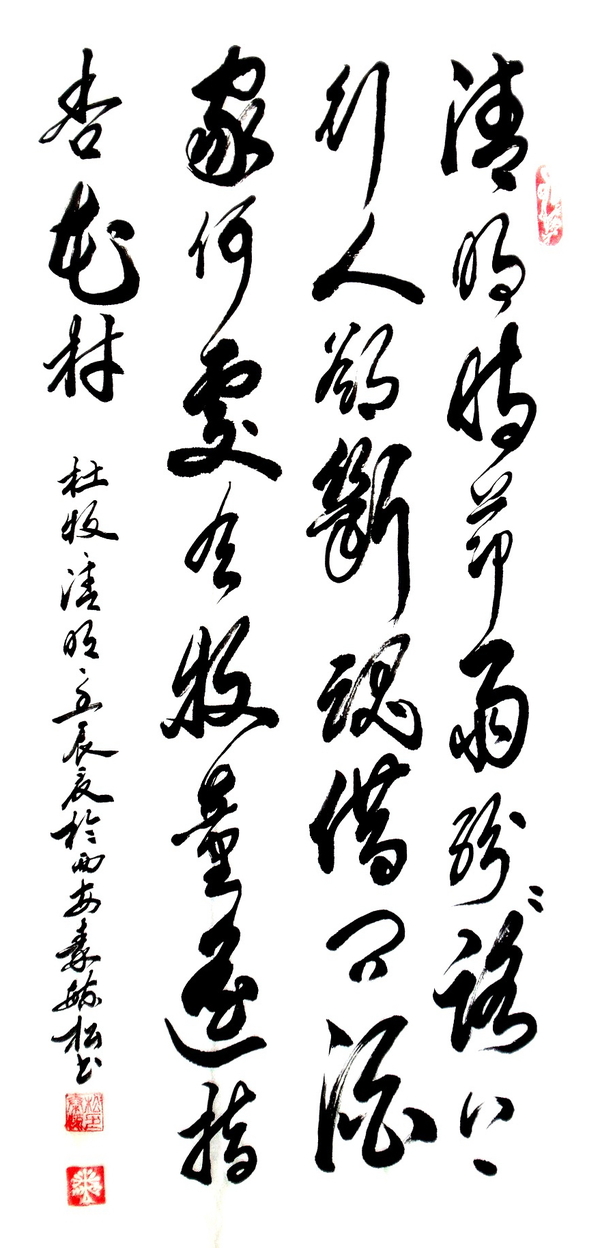 清明時節雨紛〻路上
行人欲斷魂借问酒
家何處有牧童遥指
杏花村
杜牧清明壬辰夏於西安秦毓松书